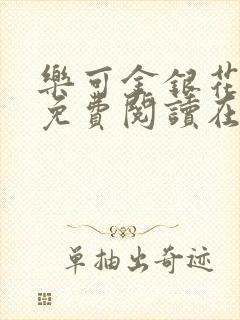 樂可金銀花
免費閱讀在
單抽出奇迹